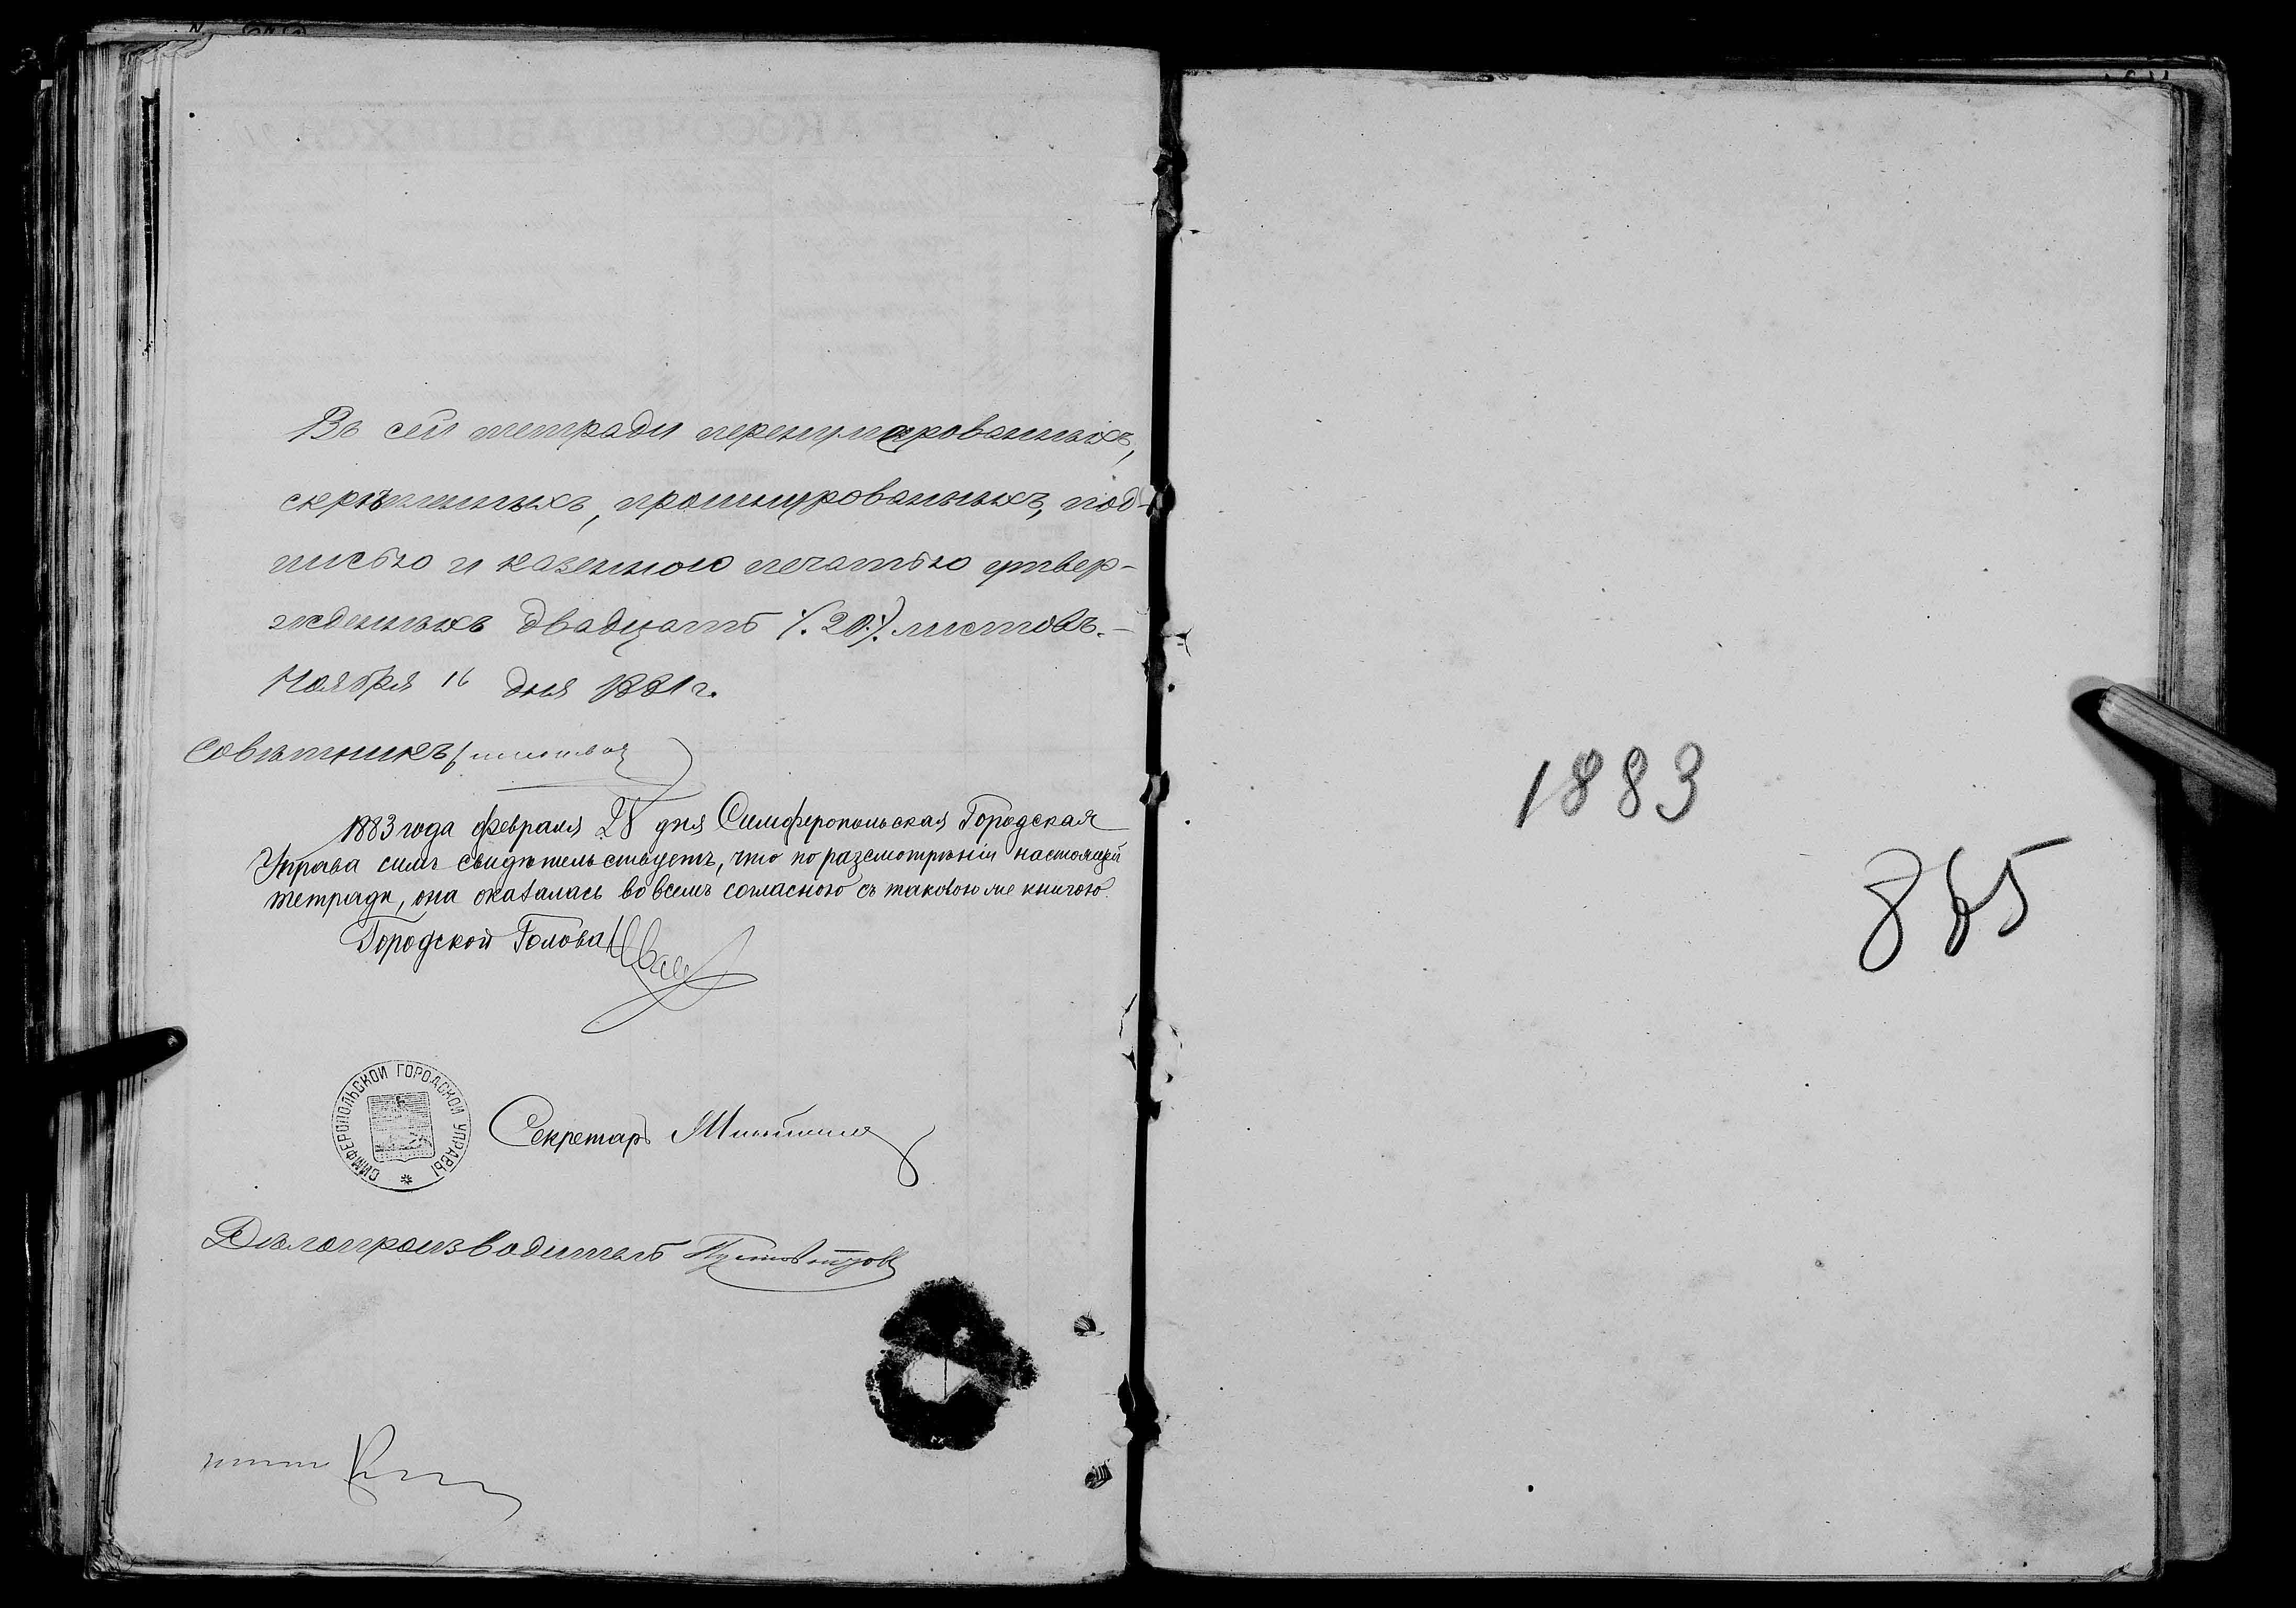 Въ сей тетради перенумерованныхъ,
скрѣпленныхъ, прошнурованныхъ, под-
писью и казенною печатью утвер-
жденныхъ двадцать /.20./. листовъ.-
Ноября 16 дня 1881 г.
Совѣтникъ
1883 года февраля 28 дня Симферопольская Городская
Управа симъ свидѣтельствуетъ, что по разсмотрѣніи настоящей
тетради, она оказалась во всемъ согласною съ таковою же книгою.
Городской Голова
СИМФЕРОПОЛЬСКОЙ ГОРОДСКОЙ УПРАВЫ
Секретарь
Дѣлопроизводитель
1883
865